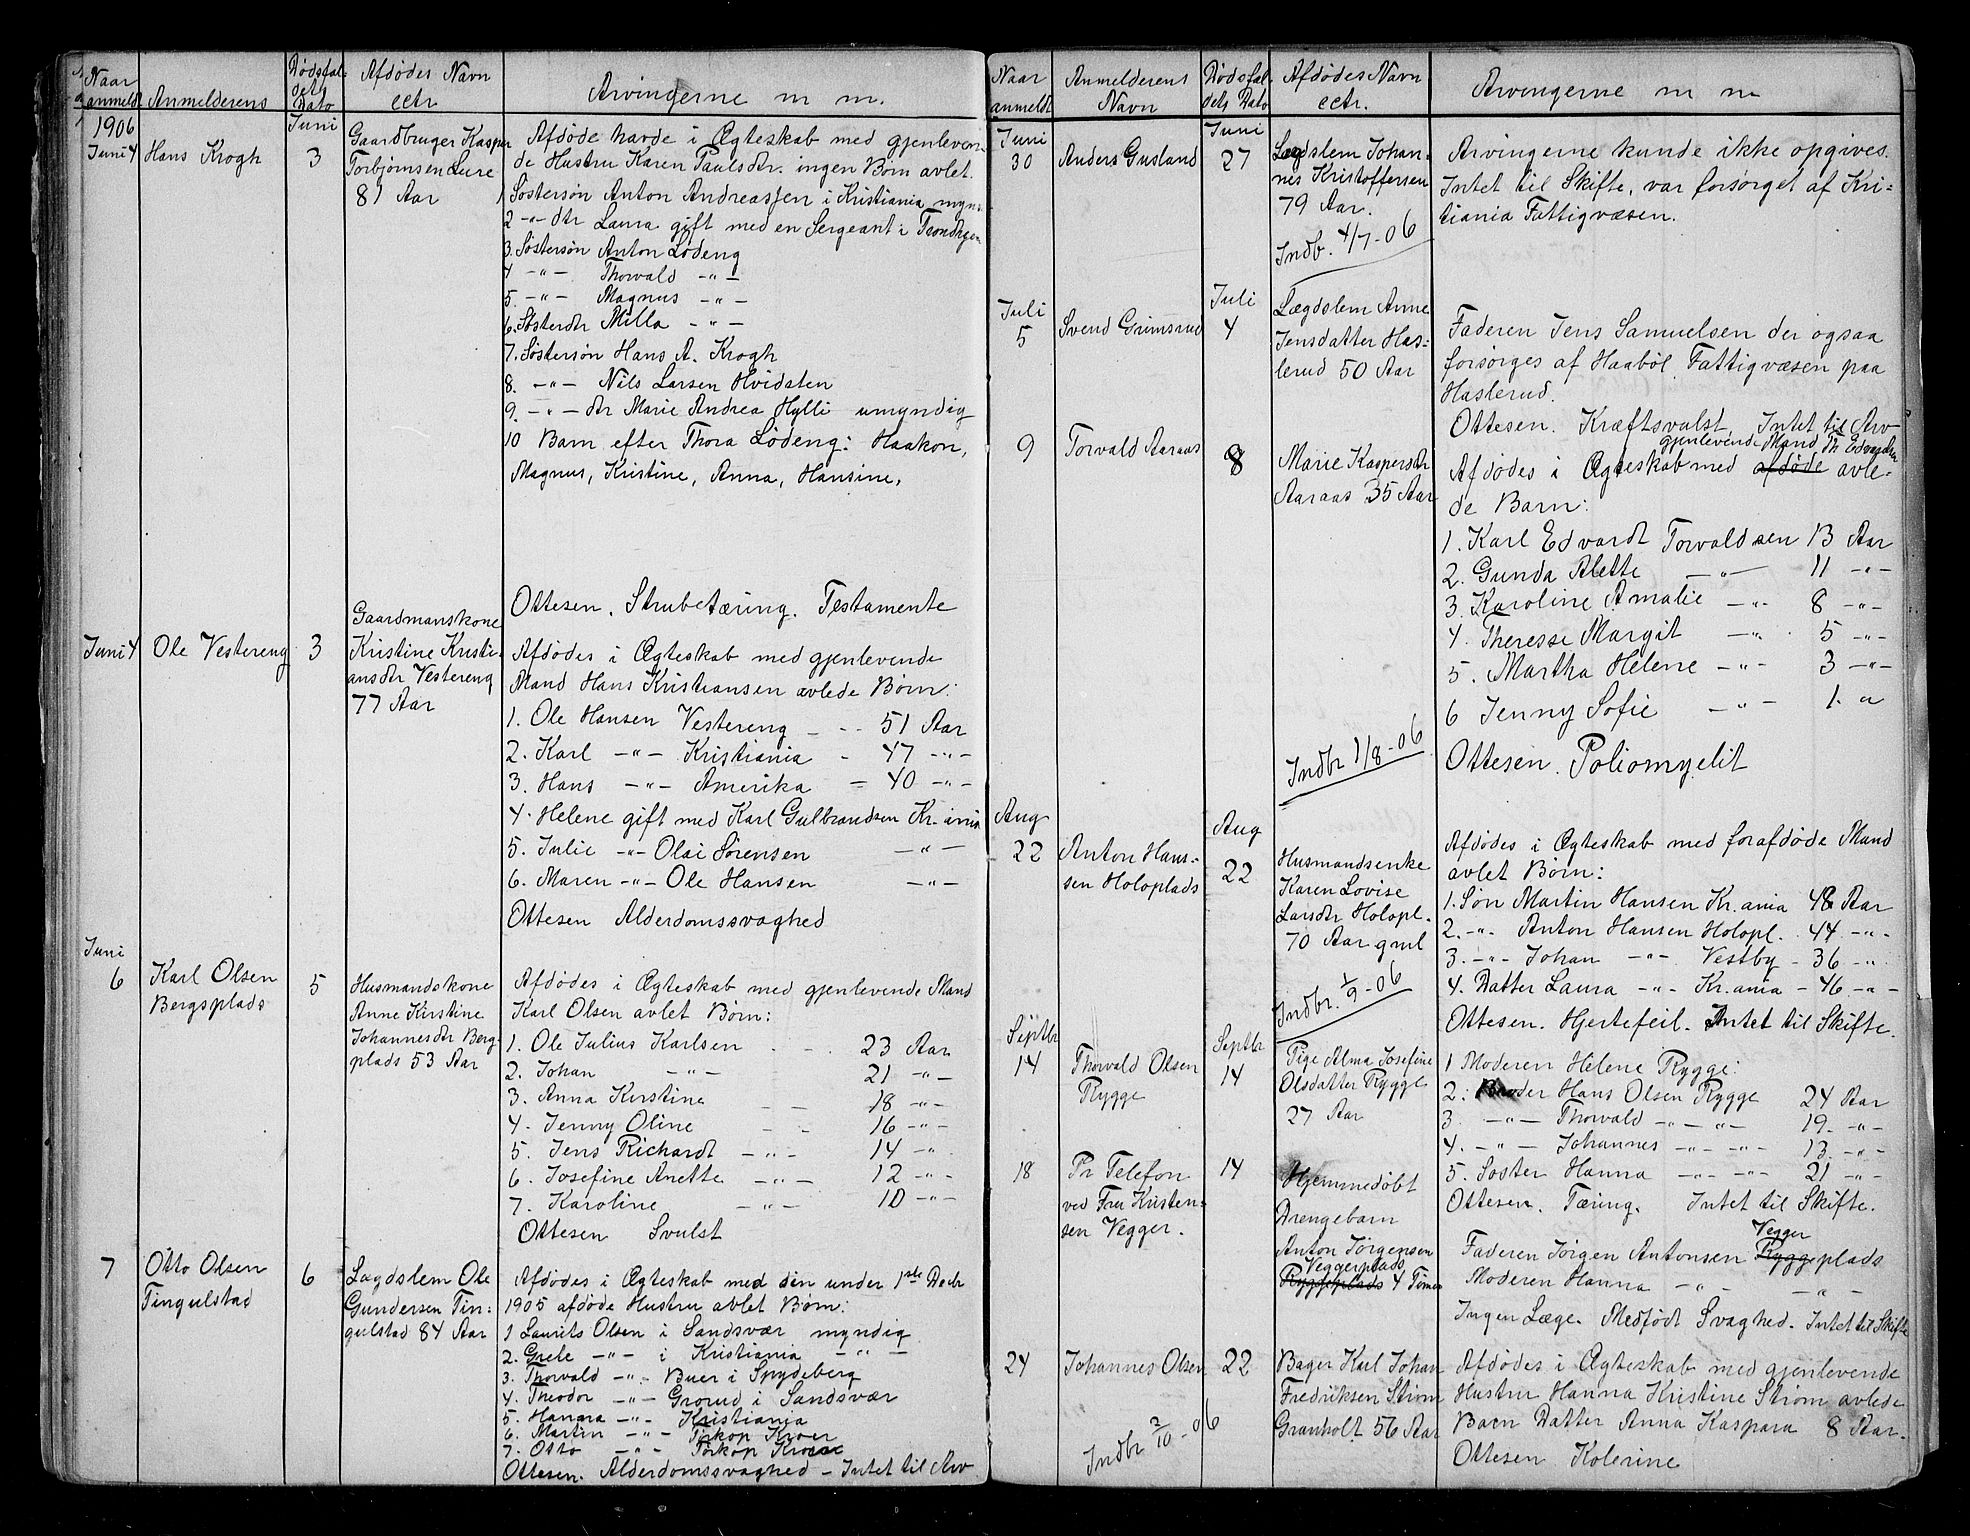 Naar anmeldt
Anmelderens
Dødsfaldets Dato
Afdødes Navn ectr
Arvingerne m m.
1906
Juni 4
Hans Krogh
Juni
3
Gaardbruger Kasper
Torbjørnsen Lure
81 Aar
Afdøde havde i Ægteskab med gjenleven-
de Hustru Karen Paulsdtr. ingen Børn avlet.
1 Søstersøn Anton Andreassen i Kristiania mynd
2 -"- dtr Laura gift med en Sergeant i Trondhjem
3. Søstersøn Anton Lødeng
4 -"- Thorvald -"-
5. -"- Magnus -"-
6. Søsterdtr Milla -"-
7. Søstersøn Hans A. Krogh
8. -"- Nils Larsen Hvidsten
9. -"- dtr Marie Andrea Hylli umyndig
10 Barn efter Thora Lødeng: Haakon,
Magnus, Kristine, Anna, Hansine,
Ottesen. Strubetæring. Testamente
Juni 4
Ole Vestereng
3
Gaardmanskone
Kristine Kristi-
ansdtr Vestereng
77 Aar
Afdødes i Ægteskab med gjenlevende
Mand Hans Kristiansen avlede Børn:
1. Ole Hansen Vestereng - - - 51 Aar
2. Karl -"- Kristiania - 47 -"-
3. Hans -"- Amerika = 40 -"-
4. Helene gift med Karl Gulbrandsen Kr. ania
5. Julie -"- Olai Sørensen -"-
6. Maren -"- Ole Hansen -"-
Ottesen Alderdomssvaghed
Juni
6
Karl Olsen
Bergsplads
5
Husmandskone
Anne Kirstine
Johannesdtr Berg-
plads 53 Aar
Afdødes i Ægteskab med gjenlevende Mand
Karl Olsen avlet Børn:
1. Ole Julius Karlsen - - 23 Aar
2. Johan -"- 21 -"-
3. Anna Kirstine - - 18 -"-
4. Jenny Oline - - 16 -"-
5. Jens Richardt -"- 14 -"-
6. Josefine Anette -"- 12 -"-
7. Karoline -"- 10 -"-
Ottesen Svulst
7
Otto Olsen
Tingulstad
6
Lægdslem Ole
Gundersen Tin-
gulstad 84 Aar
Afdødes i Ægteskab med din under 1ste Decbr
1905 afdøde Hustru avlet Børn:
1 Laurits Olsen i Sandsvær myndig
2. Grele -"- i Kristiania -"-
3. Thorvald -"- Buer i Spydeberg
4. Theodor -"- Grorud i Sandsvær
5. Hanara -"- Kristiania
6. Martin -"- Torkop Kroer
7. Otto -"- Torkop Kroer
Ottesen. Alderdomssvaghed - Intet til Arv
Naar anmeldt
Anmelderens Navn
Dødsfaldets Dato
Afdødes Navn ectr.
Arvingerne m m
Juni
30
Anders Gusland
Juni
27
Lægdslem Johan-
nes Kristoffersen
79 Aar.
Indb. 4/7-06
Arvingerne kunde ikke opgives.
Intet til Skifte, var forsørget af Kri-
tiania Fattigvæsen.
Juli
5
Svend Grimsrud
Juli
4
Lægdslem Anne
Jensdatter Has-
lerud 50 Aar
Faderen Jens Samuelsen der ogsaa
forsørges af Haabøl Fattigvæsen paa
Haslerud.
Ottesen. Kræftsvulst. Intet til Arv
9
Torvald Aaraas
8
Marie Kaspersdtr
Aaraas 35 Aar
gjenlevende Mand Th Edvardsen
Afdødes i Ægteskab med afdøde avle-
de Barn:
1. Karl Edvardt Torvaldsen 13 Aar
2. Gunda Alette -"- 11 -"-
3. Karoline Amalie -"- 8 -"-
4. Theresse Margit -"- 5 -"-
5. Martha Helene -"- 3 -"-
6 Jenny Sofie -"- 1. "
Indbr 1/8-06
Ottesen. Poliomyelit
Aug
22
Anton Han-
sen Holoplads
Aug
22
Husmandsenke
Karen Lovise
Larsdtr Holopl.
70 Aar gml
Indbr. 1/9-06
Afdødes i Ægteskab med forafdøde Mand
avlet Børn:
1. Søn Martin Hansen Kr. ania 48 Aar
2. -"- Anton Hansen Holopl. 44 -"-
3. -"- Johan -"- Vestby - 36 -"-
4. Datter Laura -"- Kr. ania - 46 -"-
Ottesen. Hjertefeil. Intet til Skifte.
Septbr
14
Thorvald Olsen
Rygge
Septbr
14
Pige Alma Josefine
Olsdatter Rygge
27 Aar
1 Moderen Helene Rygge.
2. Broder Hans Olsen Rygge 24 Aar
3. -"- Thorvald -"- -"- 19. -"-
4. -"- Johannes -"- -"- 13. -"-
5. Søster Hanna -"- -"- 21 -"-
Ottesen. Tæring. Intet til Skifte.
18
Pr Telefon
ved Fru Kristen-
sen Vegger.
14
Hjemmedøbt
Drengebarn
Anton Jørgensen
Veggerplads
Ryggeplads 4 Timer
Vegger
Faderen Jørgen Antonsen Ryggeplads
Moderen Hanna -"- -"-
Ingen Læge. Medfødt Svaghed. Intet til Skifte
24
Johannes Olsen
22
Bager Karl Johan
Fredriksen Strøm
Granholt 56 Aar
Indbr 2/10-06
Afdødes i Ægteskab med gjenlevende
Hustru Hanna Kristine Strøm avlede
Barn Datter Anna Kaspara 8 Aar.
Ottesen Kolerine